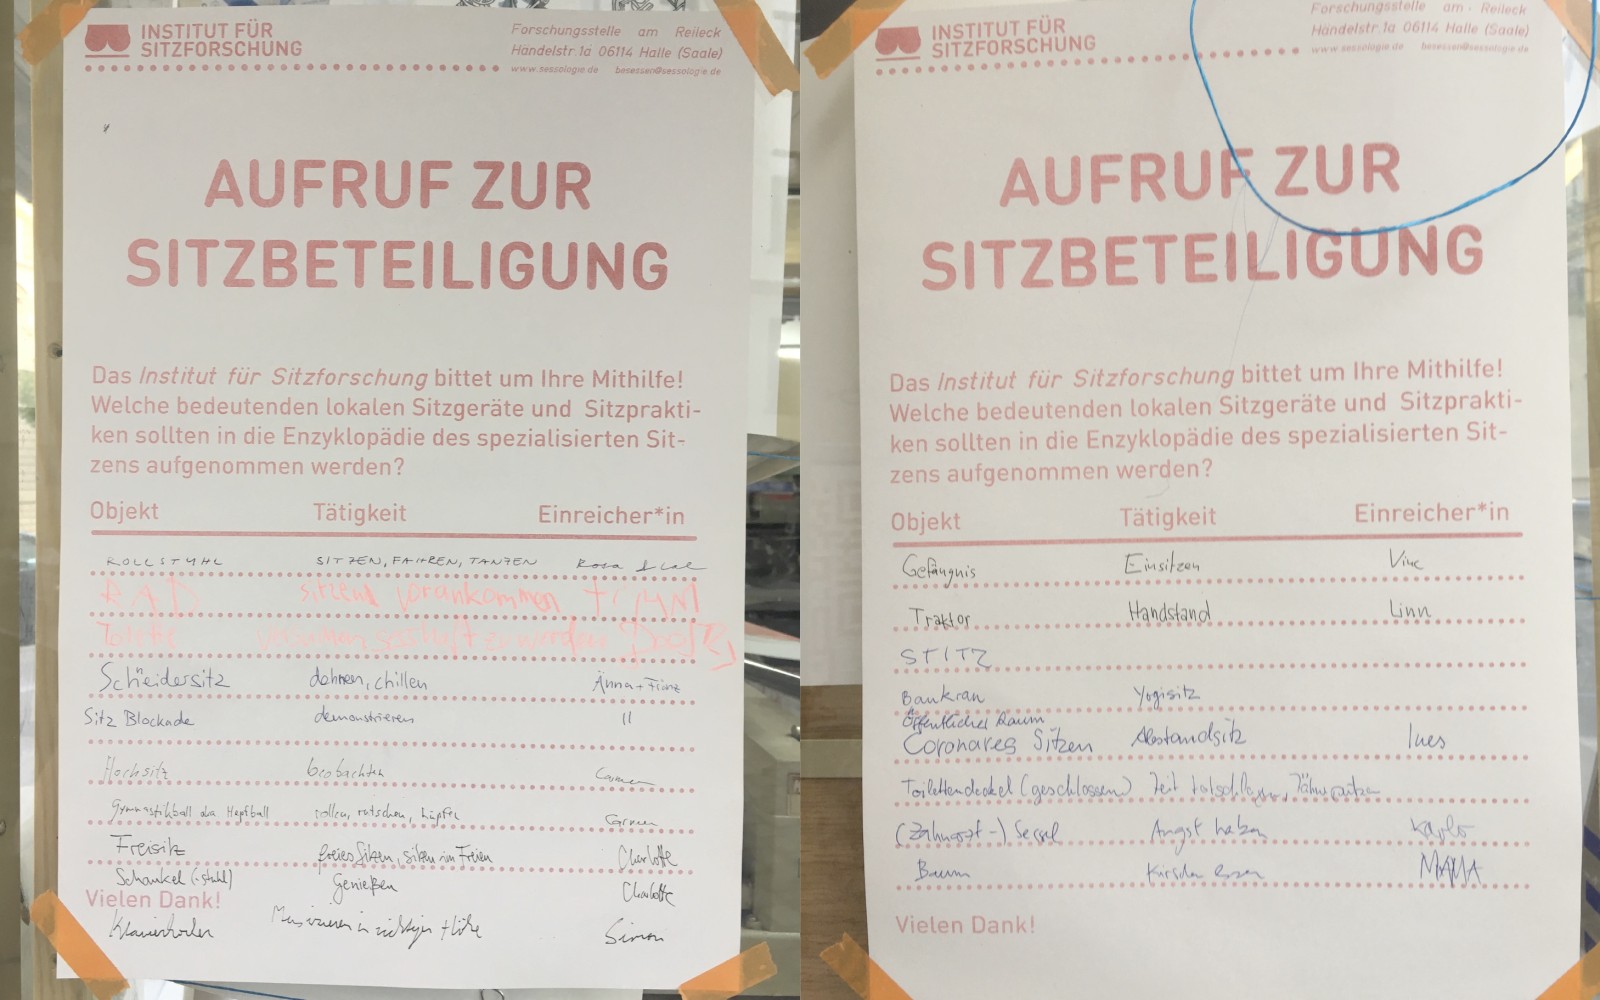 INSTITUT FÜR
SITZFORSCHUNG
Forschungsstelle am Reileck
Händelstr.1a 06114 Halle (Saale)
www.sessologie.de besessen@sessologie.de
AUFRUF ZUR
SITZBETEILIGUNG
Das Institut für Sitzforschung bittet um Ihre Mithilfe!
Welche bedeutenden lokalen Sitzgeräte und Sitzprakti-
ken sollten in die Enzyklopädie des spezialisierten Sit-
zens aufgenommen werden?
Objekt Tätigkeit Einreicher*in
ROLLSTUHL SITZEN, FAHREN, TANZEN Rosa
RAD sitzend vorankommen
Toilette
Schneidersitz dehnen, chillen Anna + Franz
Sitz Blockade demonstrieren "
Hochsitz beobachten Carmen
Gymnastikball aka Hepfball rollen, rutschen, hüpfen Carmen
Freisitz freies Sitzen, sitzen im Freien Charlotte
Schaukel (-stuhl) Genießen Charlotte
Vielen Dank!
Klavierhocker Musizieren in richtiger Höhe Simon
INSTITUT FÜR
SITZFORSCHUNG
Forschungsstelle am Reileck
Händelstr.1a 06114 Halle (Saale)
www.sessologie.de besessen@sessologie.de
AUFRUF ZUR
SITZBETEILIGUNG
Das Institut für Sitzforschung bittet um Ihre Mithilfe!
Welche bedeutenden lokalen Sitzgeräte und Sitzprakti-
ken sollten in die Enzyklopädie des spezialisierten Sit-
zens aufgenommen werden?
Objekt Tätigkeit Einreicher*in
Gefängnis Einsitzen
Traktor Handstand Linn
STITZ
Baukran Yogisitz
Öffentlicher Raum
Coronares Sitzen Abstandsitz Ines
Toilettendeckel (geschlossen) Zeit totschlagen, Zähneputzen
(Zahnarzt-) Sessel Angst haben
Baum Kirschen essen
Vielen Dank!